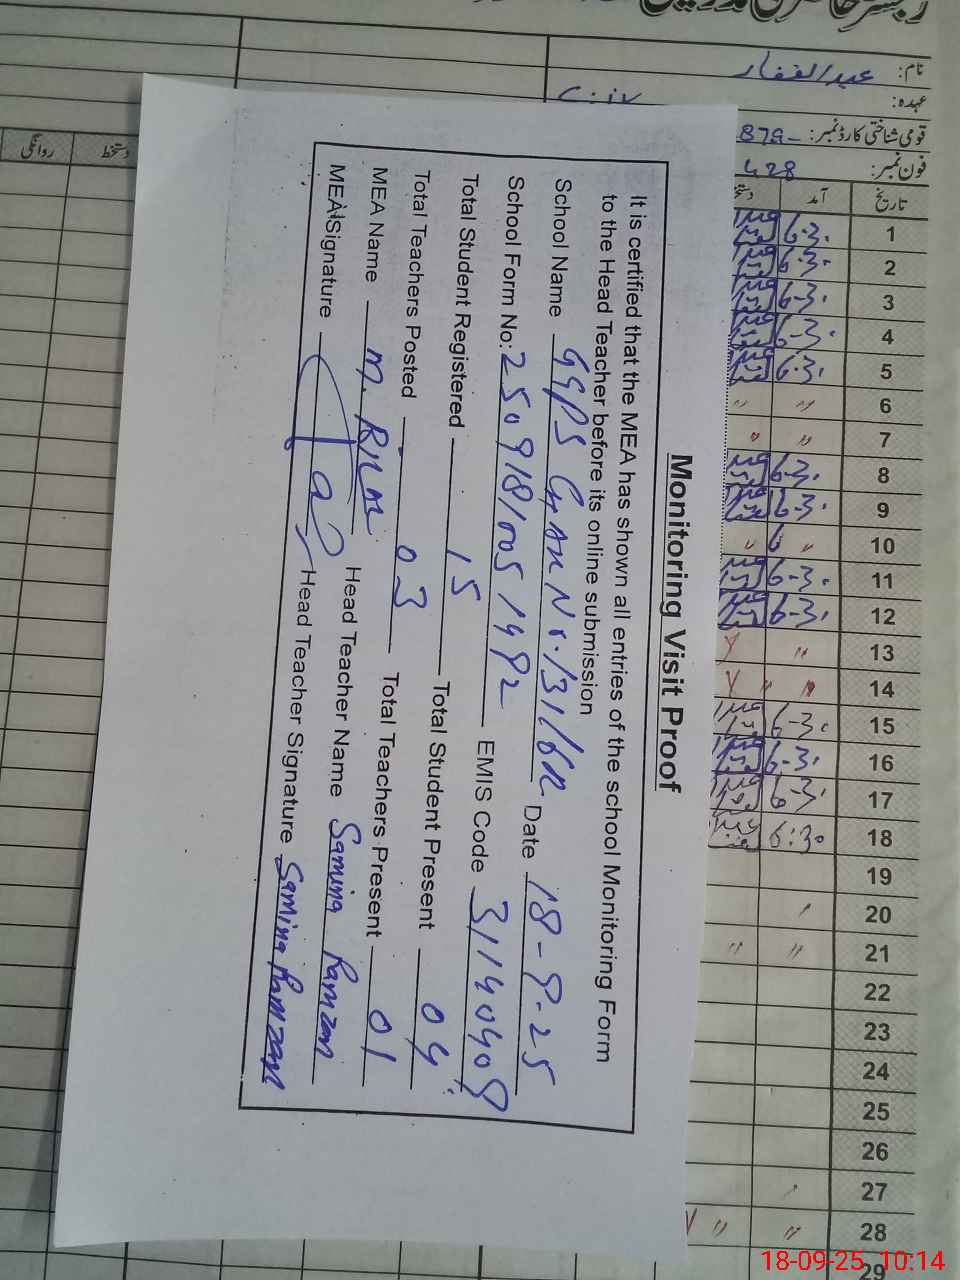 نام: عبدالغفار
عہدہ:
قومی شناختی کارڈ نمبر: 879-
فون نمبر: 428
تاریخ آمد دستخط روانگی
1 6-30
2 6-30
3 6-30
4 6-30
5 6-30
6 〃 〃
7 〃 〃
8 6-30
9 6-30
10 〃 〃
11 6-30
12 6-30
13 〃
14 〃 〃
15 6-30
16 6-30
17 6-30
18 6:30
19
20
21 〃 〃
22
23
24
25
26
27
28 〃 〃
29
Monitoring Visit Proof
It is certified that the MEA has shown all entries of the school Monitoring Form
to the Head Teacher before its online submission
School Name GGPS Chak No. 131/6R Date 18-9-25
School Form No: 250918/005 1992 EMIS Code
Total Student Registered 15 Total Student Present 04
Total Teachers Posted 03 Total Teachers Present 01
MEA Name M. Head Teacher Name Samina Ramzan
MEA Signature Head Teacher Signature Samina Ramzan
18-09-25 10:14